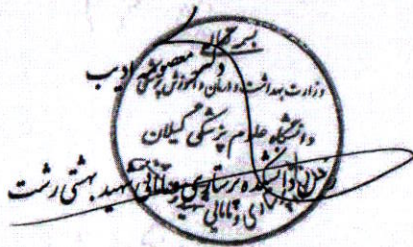 بسمه تعالی
دکتر معصومه ادیب
وزارت بهداشت درمان و آموزش پزشکی
دانشگاه علوم پزشکی گیلان
دانشکده پرستاری و مامایی شهید بهشتی رشت
پرستاری و مامایی